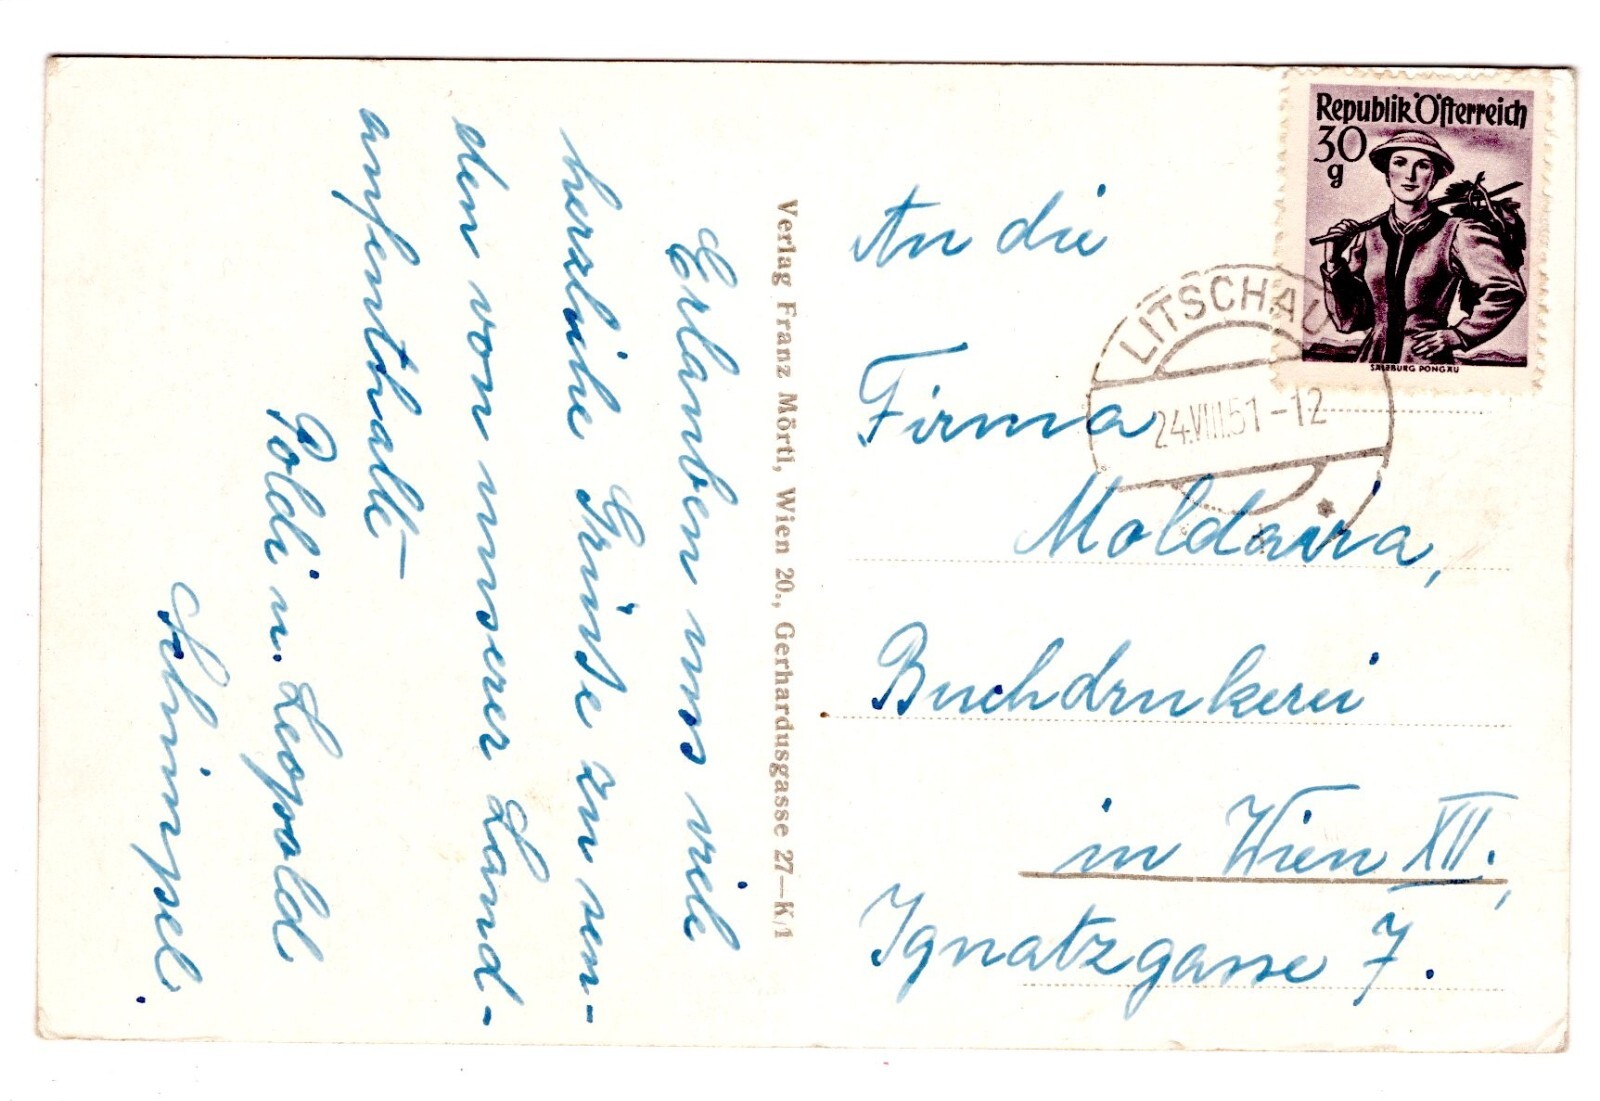 Erlauben uns viele
herzliche Grüsse zu sen-
den von unserer Land-
aufenthalte
Poldi u. Leopold
Schimpel.
Verlag Franz Mörtl, Wien 20., Gerhardusgasse 27—K/1
Republik Österreich
30
g
SALZBURG PONGAU
LITSCHAU
24.VIII.51-12
An die
Firma
Moldavia,
Buchdrukerei
in Wien XII.,
Ignatzgasse 7.